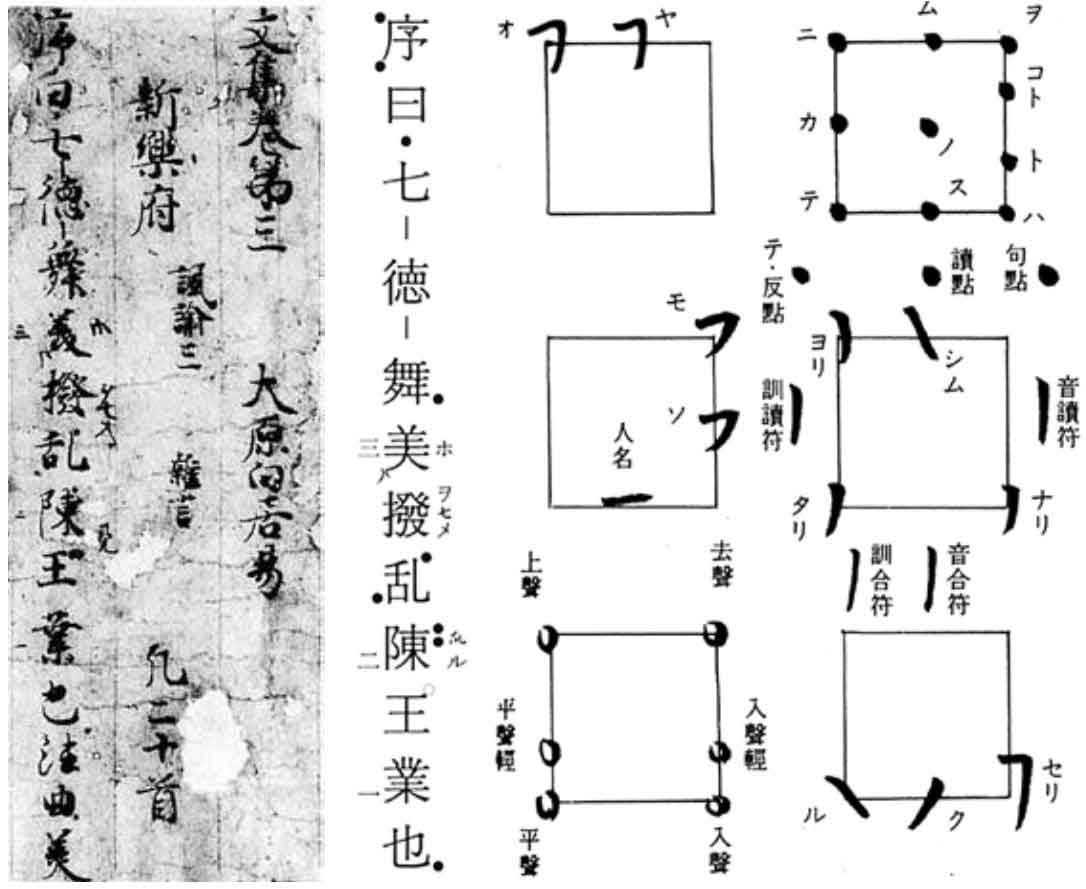 文集卷第三 大原白居易
新樂府 諷諭三 雜言 凡二十首
序曰七徳舞美撥乱陳王業也法曲美
序曰・七-徳-舞美撥乱陳王業也
ホ
ヲセメ
ル
三
ハ
二
一
オ ヤ
ニ ム ヲ
コト
カ ノ ト
テ ス ハ
テ・反點 讀點 句點
モ
ソ
人名
ヨリ シム
訓讀符 音讀符
タリ ナリ
訓合符 音合符
上聲 去聲
平聲輕 入聲輕
平聲 入聲
ル ク セリ